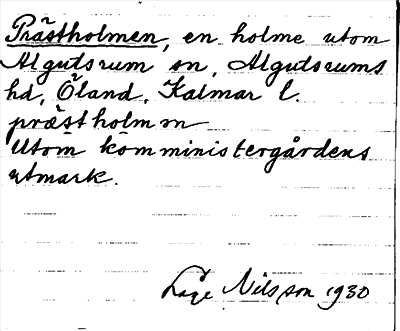 Prästholmen, en holme utom
Algutsrum sn, Algutsrums
hd, Öland, Kalmar l.
præstholmen
Utom komministergårdens
utmark.
Lage Nilsson 1930